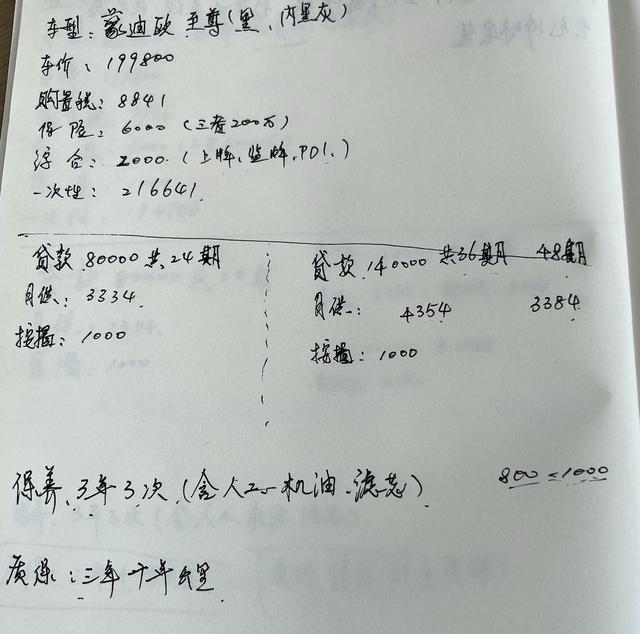 车型: 蒙迪欧 至尊(黑、内黑灰)
车价: 199800
购置税: 8841
保险: 6000 (三者200万)
综合: 2000. (上牌、监牌、PDI、)
一次性: 216641.
贷款 80000 共24期
月供: 3334.
按揭: 1000
贷款 140000 共36期月 48期月
月供: 4354 3384
按揭: 1000
保养、3年3次 (含人工、机油、滤芯) 800-1000
质保: 三年十